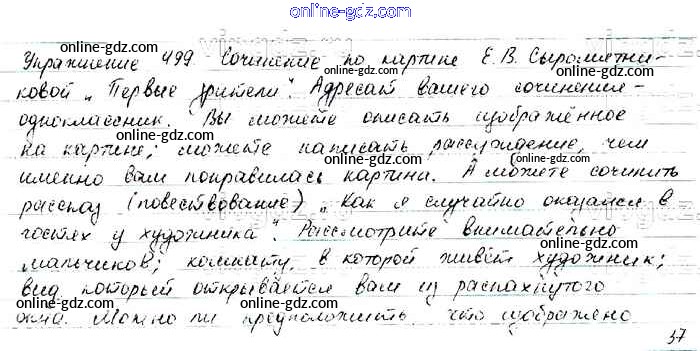 online-gdz.com
Упражнение 499. Сочинение по картине Е.В. Сыромятни-
ковой „Первые зрители". Адресат вашего сочинения -
одноклассник. Вы можете описать изображённое
на картине; можете написать рассуждение, чем
именно вам понравилась картина. А можете сочинить
рассказ (повествование) „Как я случайно оказался в
гостях у художника". Рассмотрите внимательно
мальчиков; комнату, в которой живёт художник;
вид, который открывается вам из распахнутого
окна. Можно ли предположить, что изображено
37